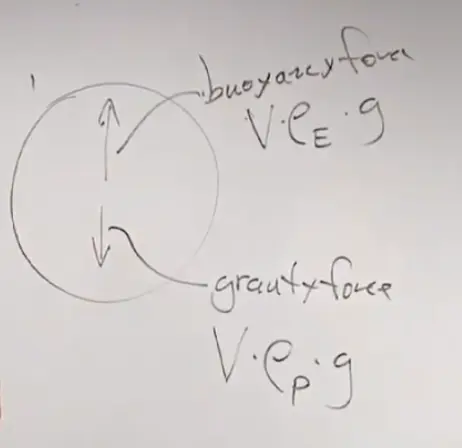 buoyancy force
V·ρ_E·g
gravity force
V·ρ_p·g